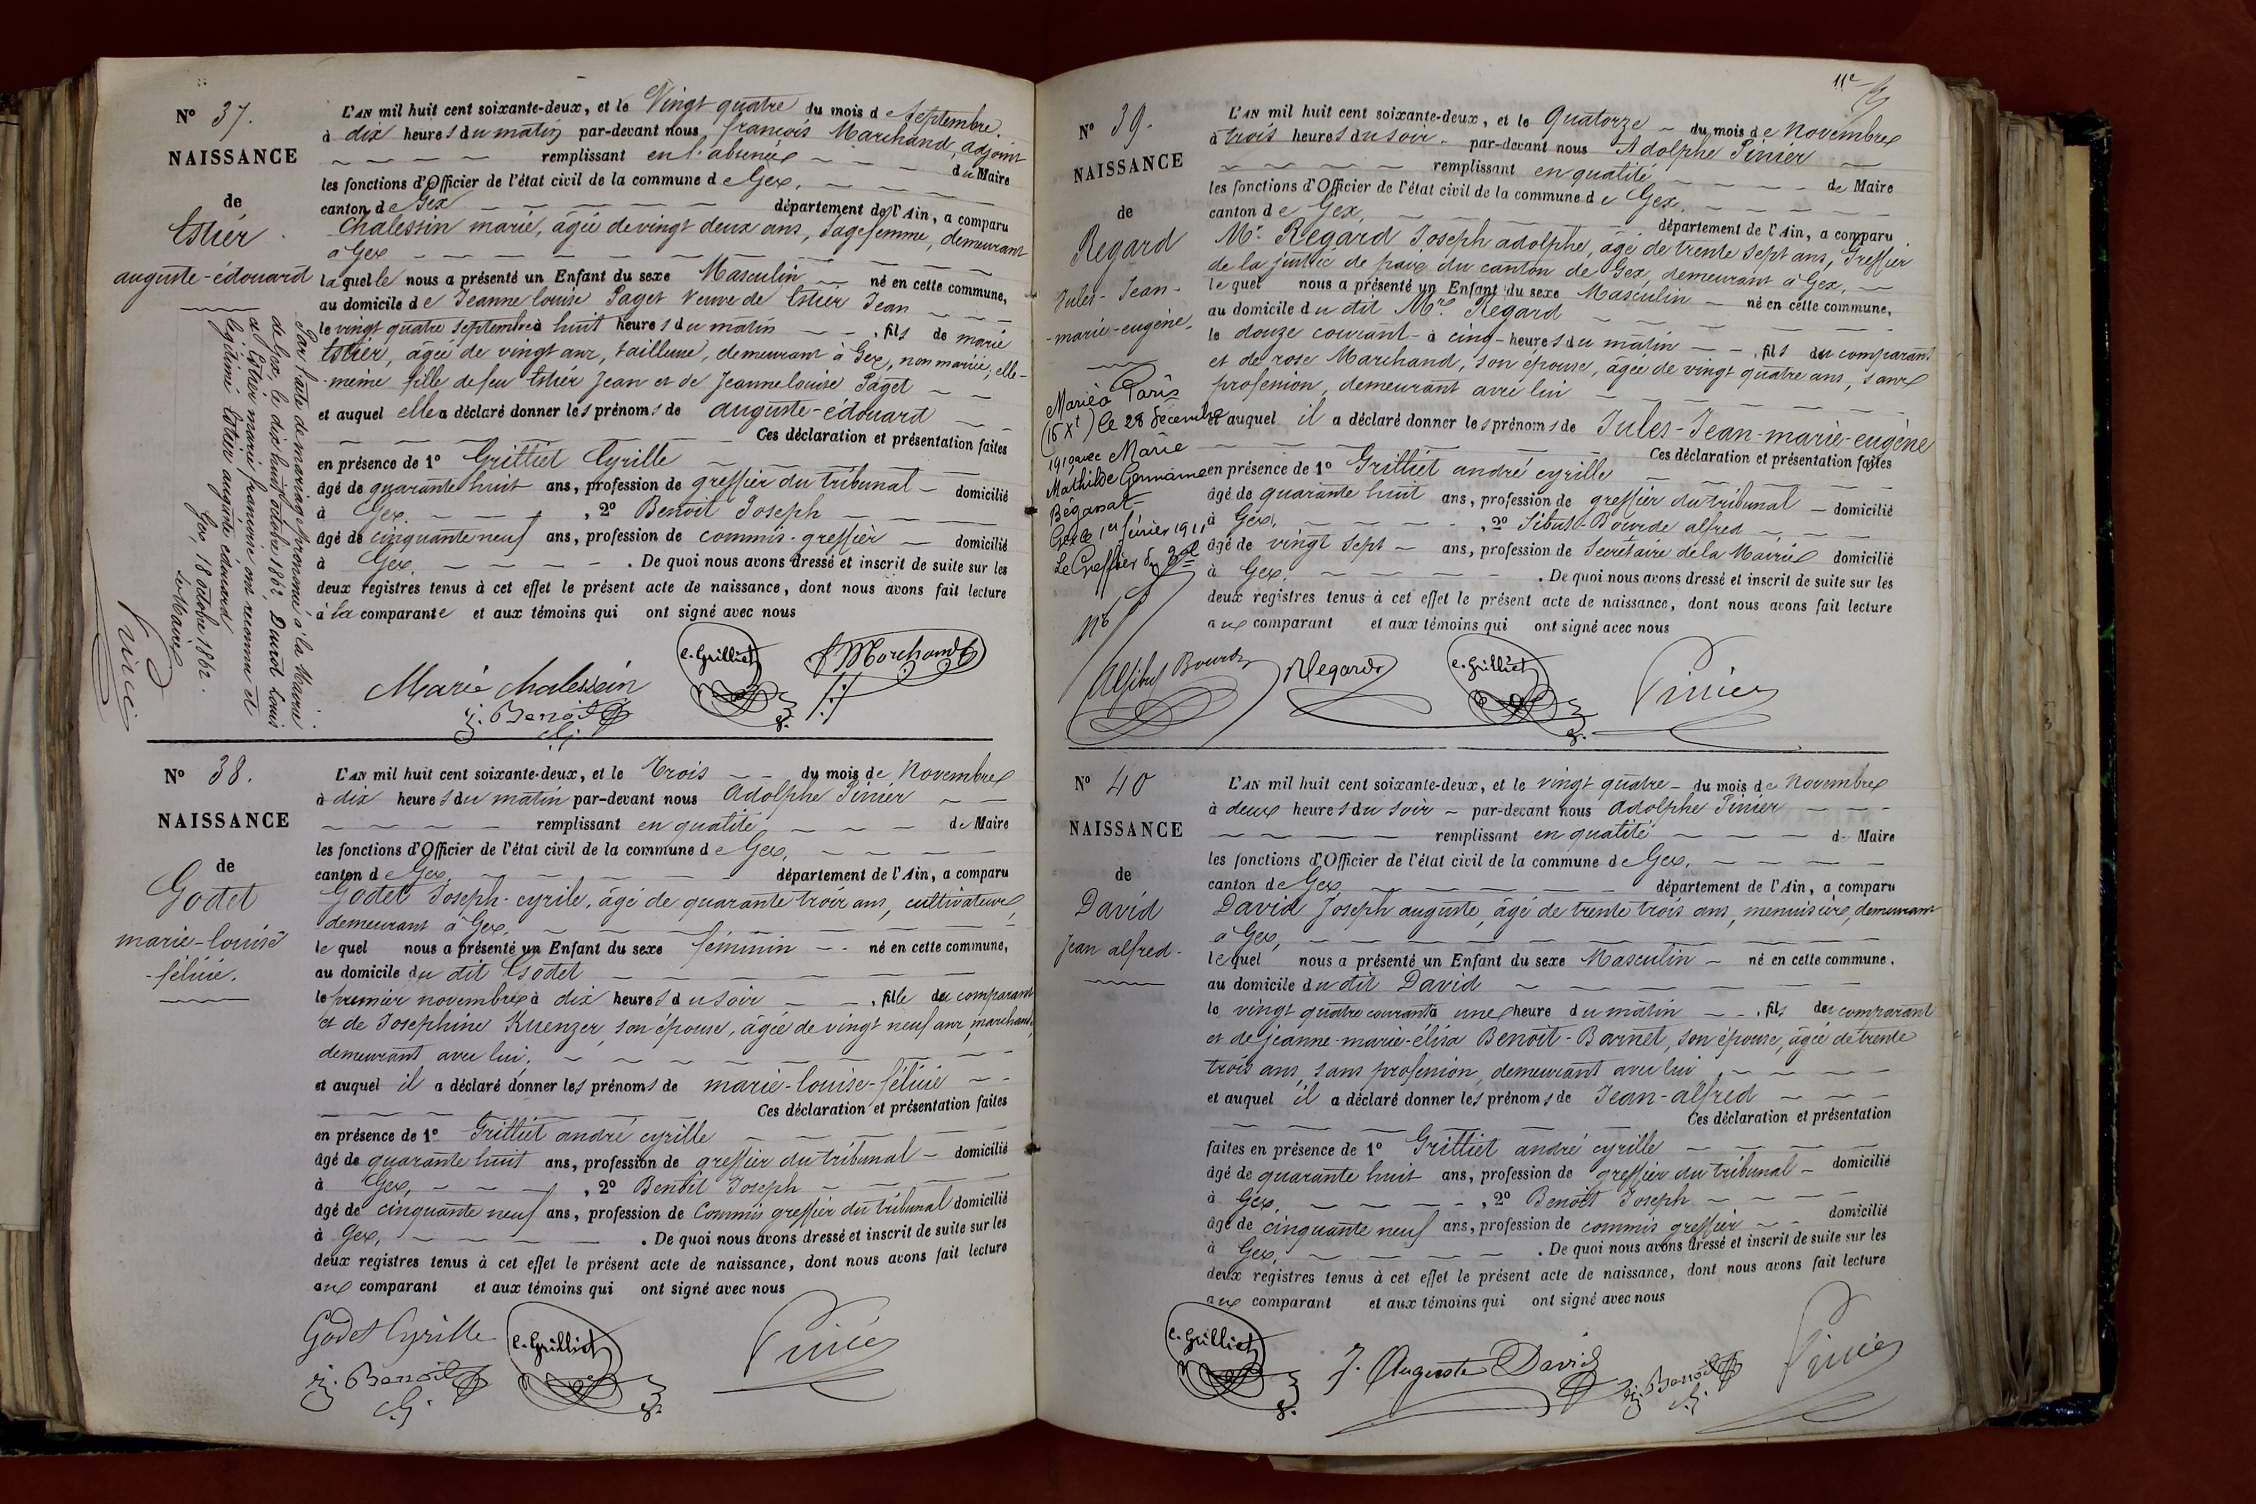 N° 37.
NAISSANCE
de
Estier
auguste-édouard
L'AN mil huit cent soixante-deux, et le Vingt quatre du mois de Septembre.
à dix heures du matin par-devant nous, françois Marchand, adjoint
remplissant en l'absence du Maire
les fonctions d'Officier de l'état civil de la commune de Gex.
canton de Gex département de l'Ain, a comparu
Chalessin marie, âgée de vingt deux ans, Sagefemme, demeurant
à Gex
laquelle nous a présenté un Enfant du sexe Masculin né en cette commune,
au domicile de Jeanne louise Paget veuve de Estier Jean
le vingt quatre septembre à huit heures du matin, fils de marie
Estier, âgée de vingt ans, tailleuse, demeurant à Gex, non mariée, elle-
même fille de feu Estier Jean et de Jeanne louise Paget
et auquel elle a déclaré donner les prénoms de auguste-édouard
Ces déclaration et présentation faites
en présence de 1° Grilliet Cyrille
âgé de quarante huit ans, profession de greffier du tribunal domicilié
à Gex. , 2° Benoit Joseph
âgé de cinquante neuf ans, profession de commis-greffier domicilié
à Gex. . De quoi nous avons dressé et inscrit de suite sur les
deux registres tenus à cet effet le présent acte de naissance, dont nous avons fait lecture
à la comparante et aux témoins qui ont signé avec nous
Par l'acte de mariage prononcé à la Mairie
de Gex, le dix huit octobre 1862, Durot Louis
et Estier marie françoise ont reconnu et
légitimé Estier auguste édouard
Gex, 18 octobre 1862.
Le Maire
Pinier
Marie chalessin
C. Grilliet
f Marchand
j. Benoit
N° 38.
NAISSANCE
de
Godet
marie-louise
-félicie.
L'AN mil huit cent soixante-deux, et le Trois du mois de Novembre
à dix heures du matin par-devant nous Adolphe Pinier
remplissant en qualité de Maire
les fonctions d'Officier de l'état civil de la commune de Gex,
canton de Gex département de l'Ain, a comparu
Godet Joseph-cyrile, âgé de quarante trois ans, cultivateur,
demeurant à Gex,
lequel nous a présenté un Enfant du sexe féminin né en cette commune,
au domicile du dit Godet
le premier novembre à dix heures du soir, fille du comparant
et de Josephine Kuenzer, son épouse, âgée de vingt neuf ans, marchande,
demeurant avec lui,
et auquel il a déclaré donner les prénoms de marie-louise-félicie
Ces déclaration et présentation faites
en présence de 1° Grilliet andré cyrille
âgé de quarante huit ans, profession de greffier du tribunal domicilié
à Gex, , 2° Benoit Joseph
âgé de cinquante neuf ans, profession de Commis greffier du tribunal domicilié
à Gex, . De quoi nous avons dressé et inscrit de suite sur les
deux registres tenus à cet effet le présent acte de naissance, dont nous avons fait lecture
aux comparant et aux témoins qui ont signé avec nous
Godet Cyrille
C. Grilliet
Pinier
j. Benoit
11e
N° 39.
NAISSANCE
de
Regard
Jules-Jean-
-marie-eugène.
L'AN mil huit cent soixante-deux, et le Quatorze du mois de Novembre
à trois heures du soir par-devant nous Adolphe Pinier
remplissant en qualité de Maire
les fonctions d'Officier de l'état civil de la commune de Gex.
canton de Gex, département de l'Ain, a comparu
Mr. Regard Joseph adolphe, âgé de trente sept ans, Greffier
de la justice de paix du canton de Gex, demeurant à Gex,
lequel nous a présenté un Enfant du sexe Masculin né en cette commune,
au domicile du dit Mre Regard
le douze courant à cinq heures du matin, fils du comparant
et de rose Marchand, son épouse, âgée de vingt quatre ans, sans
profession, demeurant avec lui
et auquel il a déclaré donner les prénoms de Jules-Jean-marie-eugène
Ces déclaration et présentation faites
en présence de 1° Grilliet andré cyrille
âgé de quarante huit ans, profession de greffier du tribunal domicilié
à Gex, , 2° Sibut-Bourde alfred
âgé de vingt sept ans, profession de Secrétaire de la Mairie domicilié
à Gex. . De quoi nous avons dressé et inscrit de suite sur les
deux registres tenus à cet effet le présent acte de naissance, dont nous avons fait lecture
aux comparant et aux témoins qui ont signé avec nous
Marié à Paris
(15 Xt) le 28 décembre
1910 avec Marie
Mathilde Germaine
Béganat
Gex le 1er février 1911
Le Greffier
A Sibut Bourde
Regard
C. Grilliet
Pinier
N° 40
NAISSANCE
de
David
Jean alfred-
L'AN mil huit cent soixante-deux, et le vingt quatre du mois de Novembre
à deux heures du soir par-devant nous Adolphe Pinier
remplissant en qualité de Maire
les fonctions d'Officier de l'état civil de la commune de Gex,
canton de Gex, département de l'Ain, a comparu
David Joseph auguste, âgé de trente trois ans, menuisier, demeurant
à Gex,
lequel nous a présenté un Enfant du sexe Masculin né en cette commune.
au domicile du dit David
le vingt quatre courant à une heure du matin, fils du comparant
et de jeanne-marie-élisa Benoit-Barnet, son épouse, âgée de trente
trois ans, sans profession, demeurant avec lui
et auquel il a déclaré donner les prénoms de Jean-alfred
Ces déclaration et présentation
faites en présence de 1° Grilliet andré cyrille
âgé de quarante huit ans, profession de greffier du tribunal domicilié
à Gex. , 2° Benoit Joseph
âgé de cinquante neuf ans, profession de commis greffier domicilié
à Gex, . De quoi nous avons dressé et inscrit de suite sur les
deux registres tenus à cet effet le présent acte de naissance, dont nous avons fait lecture
aux comparant et aux témoins qui ont signé avec nous
C. Grilliet
J. Auguste David
j. Benoit
Pinier